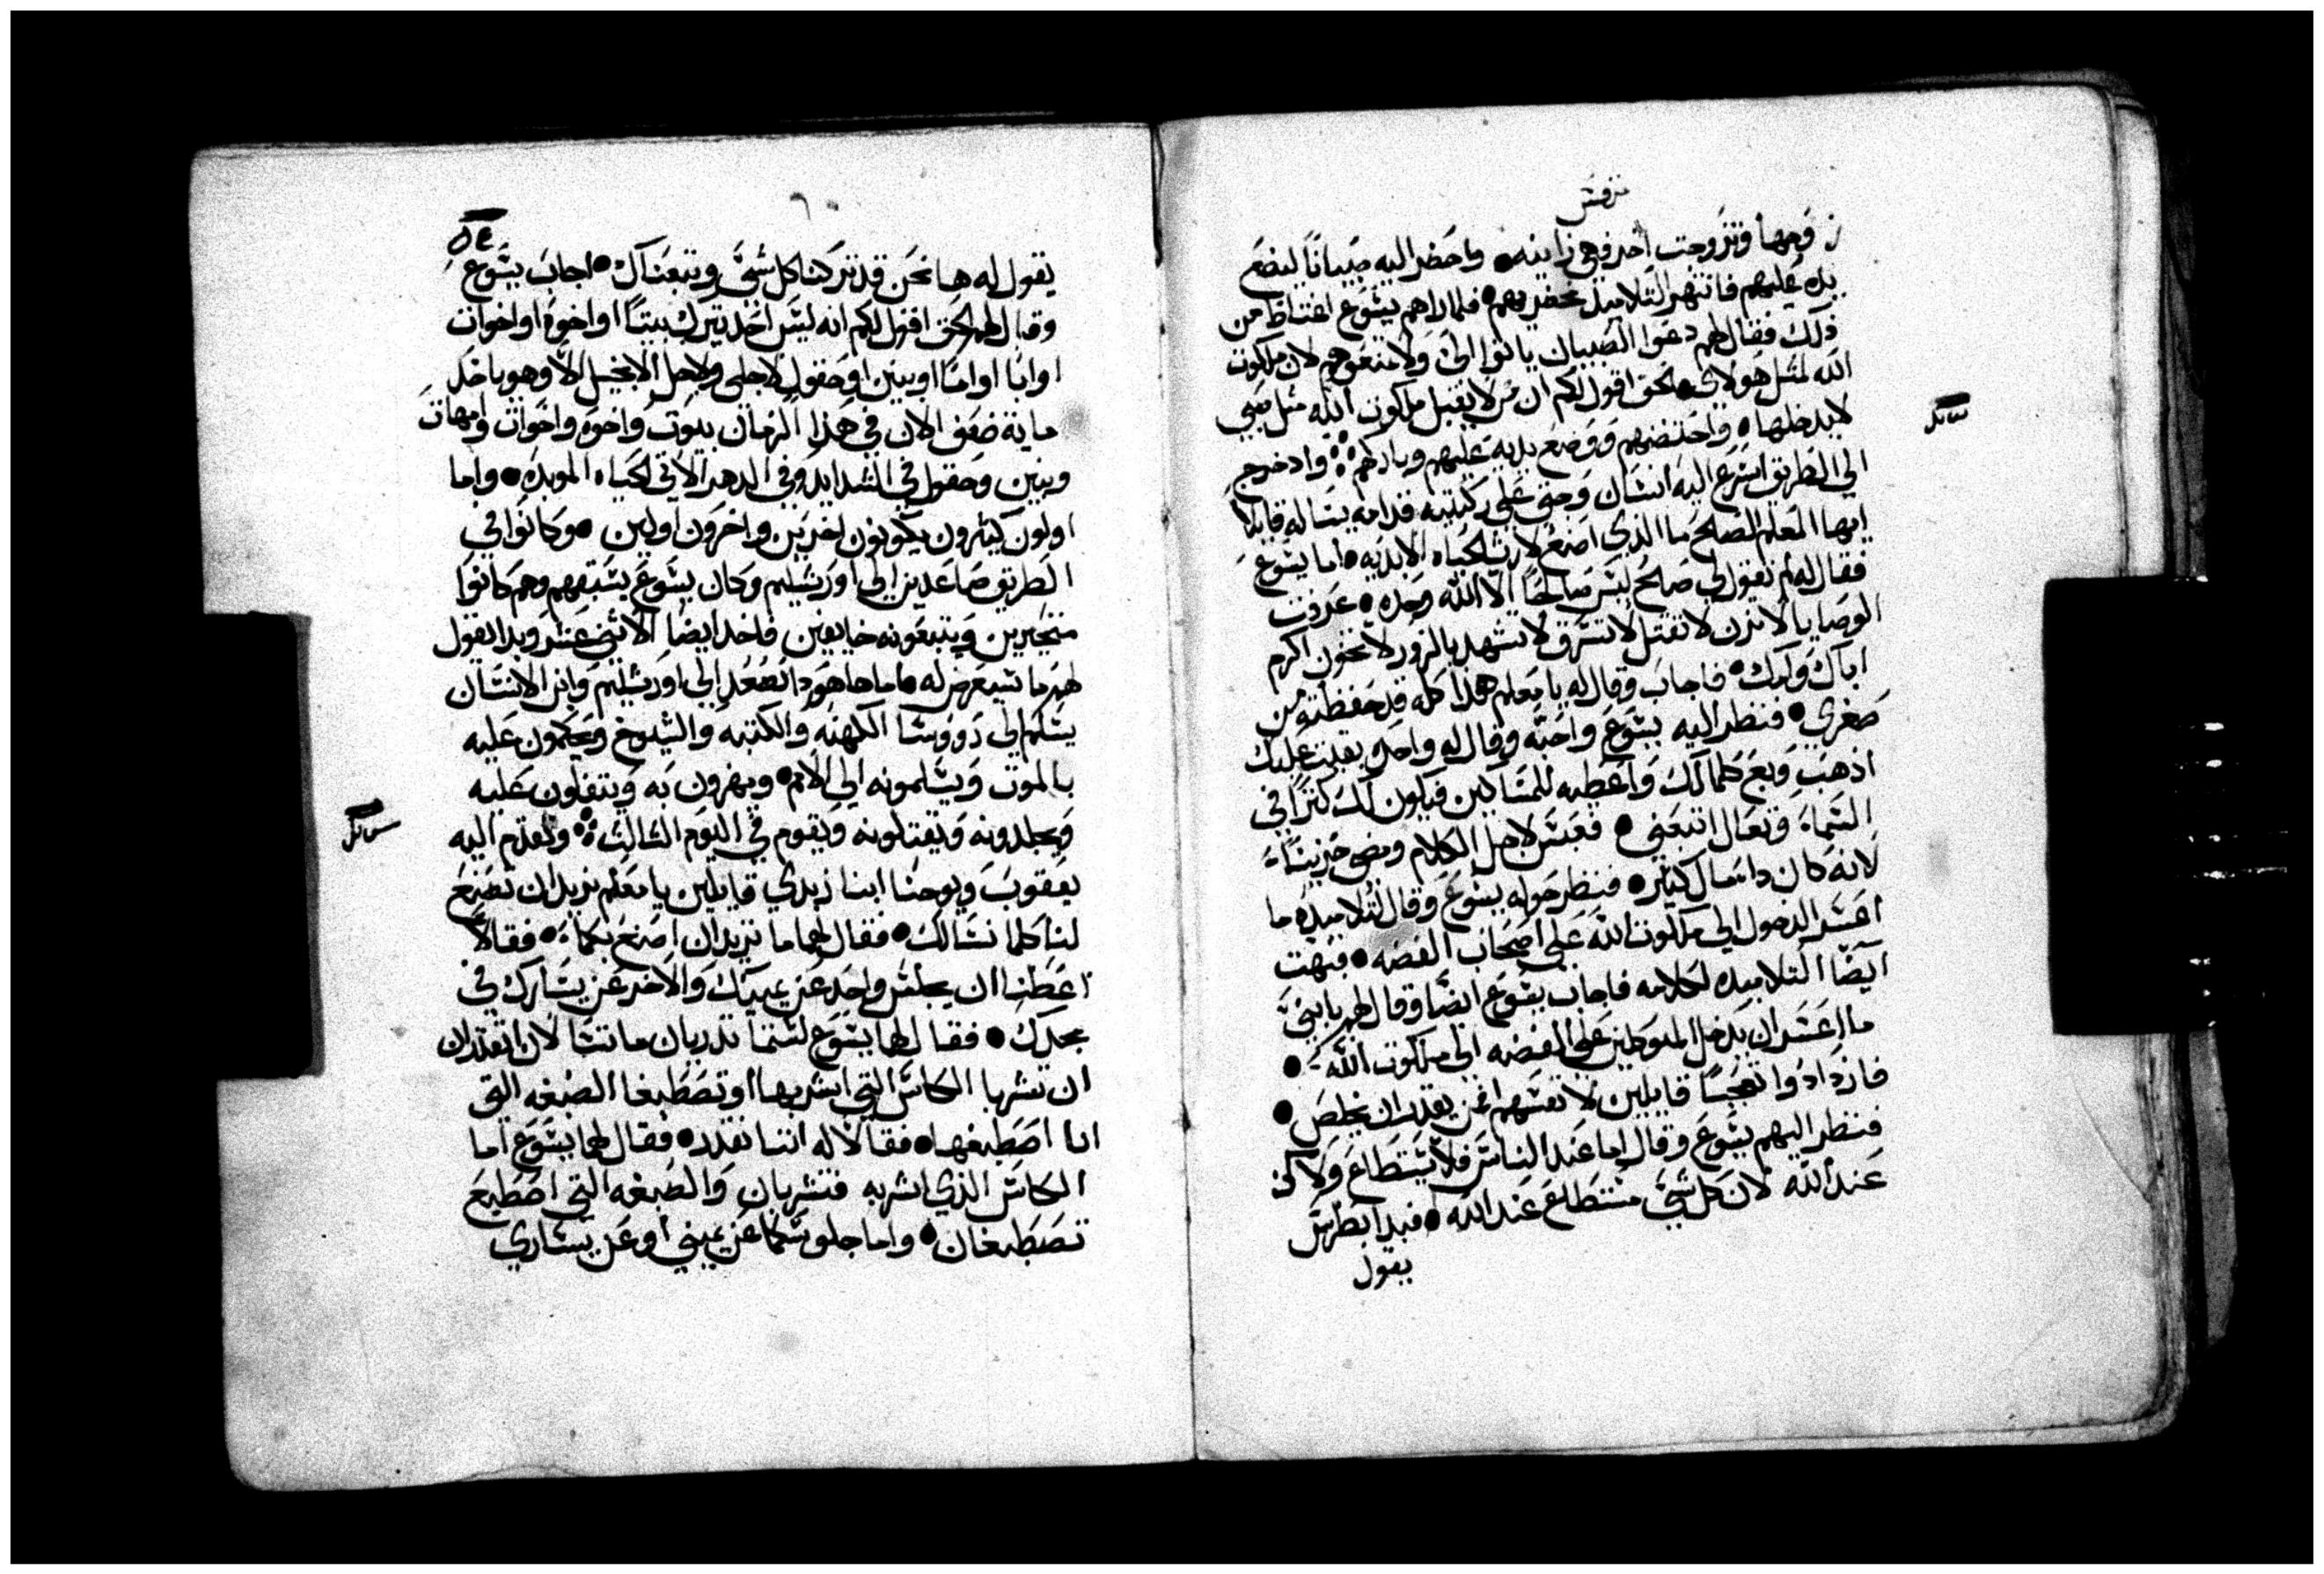 مرقس
زوجها وتزوجت اخر فهي زانيه • واحضر اليه صبيانًا ليضع
يده عليهم فانتهر التلاميذ محضريهم • فلما راهم يسوع اغتاظ من
ذلك فقال لهم دعوا الصبيان ياتوا اليّ ولا تمنعوهم لان ملكوت
الله لمثل هولاى • الحق اقول لكم ان من لا يقبل ملكوت الله مثل صبي
لا يدخلها • واحتضنهم ووضع يديه عليهم وباركهم ∴ واد خرج
الي الطريق اسرع اليه انسان وجثي علي ركبتيه قدامه يساله قايلا
ايها المعلم الصالح ما الذي اصنع لارث الحياه الابديه • اما يسوع
فقال له لم تقول لي صالح ليس صالحًا الا الله وحده • عرفت
الوصايا لا تزن لا تقتل لا تسرق لا تشهد بالزور لا تخون اكرم
اباك وامك • فاجاب وقال له يا معلم هذا كله قد حفظته من
صغري • فنظر اليه يسوع واحبه وقال له واحده بقيت عليك
اذهب وبع كلما لك واعطيه للمساكين فيكون لك كنزًا في
السماء وتعال اتبعني • فعبس لاجل الكلام ومضي حزينًا
لانه كان دا مال كثير • فنظر حوله يسوع وقال لتلاميذه ما
اعسر الدخول الي ملكوت الله علي اصحاب الفضه • فبهت
ايضا التلاميذه لكلامه فاجاب يسوع ايضًا وقال لهم يا بنيّ
ما اعسر ان يدخل المتوكلين علي الفضه الي ملكوت الله •
فازدادوا تعجبًا قايلين لانفسهم فمن يقدر ان يخلص •
فنظر اليهم يسوع وقال اما عند الناس فلا يستطاع ولاكن
عند الله لان كل شي مستطاع عند الله • فبدا بطرس
يقول
يقول له ها نحن قد تركنا كل شي وتبعناك • اجاب يسوع
وقال لهم الحق اقول لكم انه ليس احد يترك بيتًا او اخوة او اخوات
او ابا او امًا او بنين او حقول لاجلي ولاجل الانجيل الا وهو ياخد
ماية ضعف الان في هذا الزمان بيوت واخوه واخوات وامهات
وبنين وحقول في الشدايد وفي الدهر الاتي الحياه الموبده • واما
اولون كثيرون يكونون اخرين واخرون اولين • وكانوا في
الطريق صاعدين الي اورشليم وكان يسوع يسبقهم وهم كانوا
متحيرين ويتبعونه خايفين فاخد ايضا الاثني عشر وبدا يقول
لهم ما سيعرض له • اما ها هو دا نصعد الي اورشليم وابن الانسان
يسلم الي رووسا الكهنه والكتبه والشيوخ ويحكمون عليه
بالموت ويسلمونه الي الامم • ويهزون به ويتفلون عليه
ويجلدونه ويقتلونه ويقوم في اليوم الثالث ∴ وتقدم اليه
يعقوب ويوحنا ابنا زبدي قايلين يا معلم نريد ان تصنع
لنا كلما نسالك • فقال لهما ما تريدان اصنع بكما • فقالا
اعطنا ان يجلس واحد عن يمينك والاخر عن يسارك في
مجدك • فقال لهما يسوع لستما تدريان ما تسالان اتقدران
ان تشربا الكاس التي اشربها او تصطبغا الصبغه التي
انا اصطبغها • فقالا له اننا نقدر • فقال لهما يسوع اما
الكاس الذي اشربه فتشربان والصبغه التي اصطبغ
تصطبغان • واما جلوسكما عن يميني او عن يساري